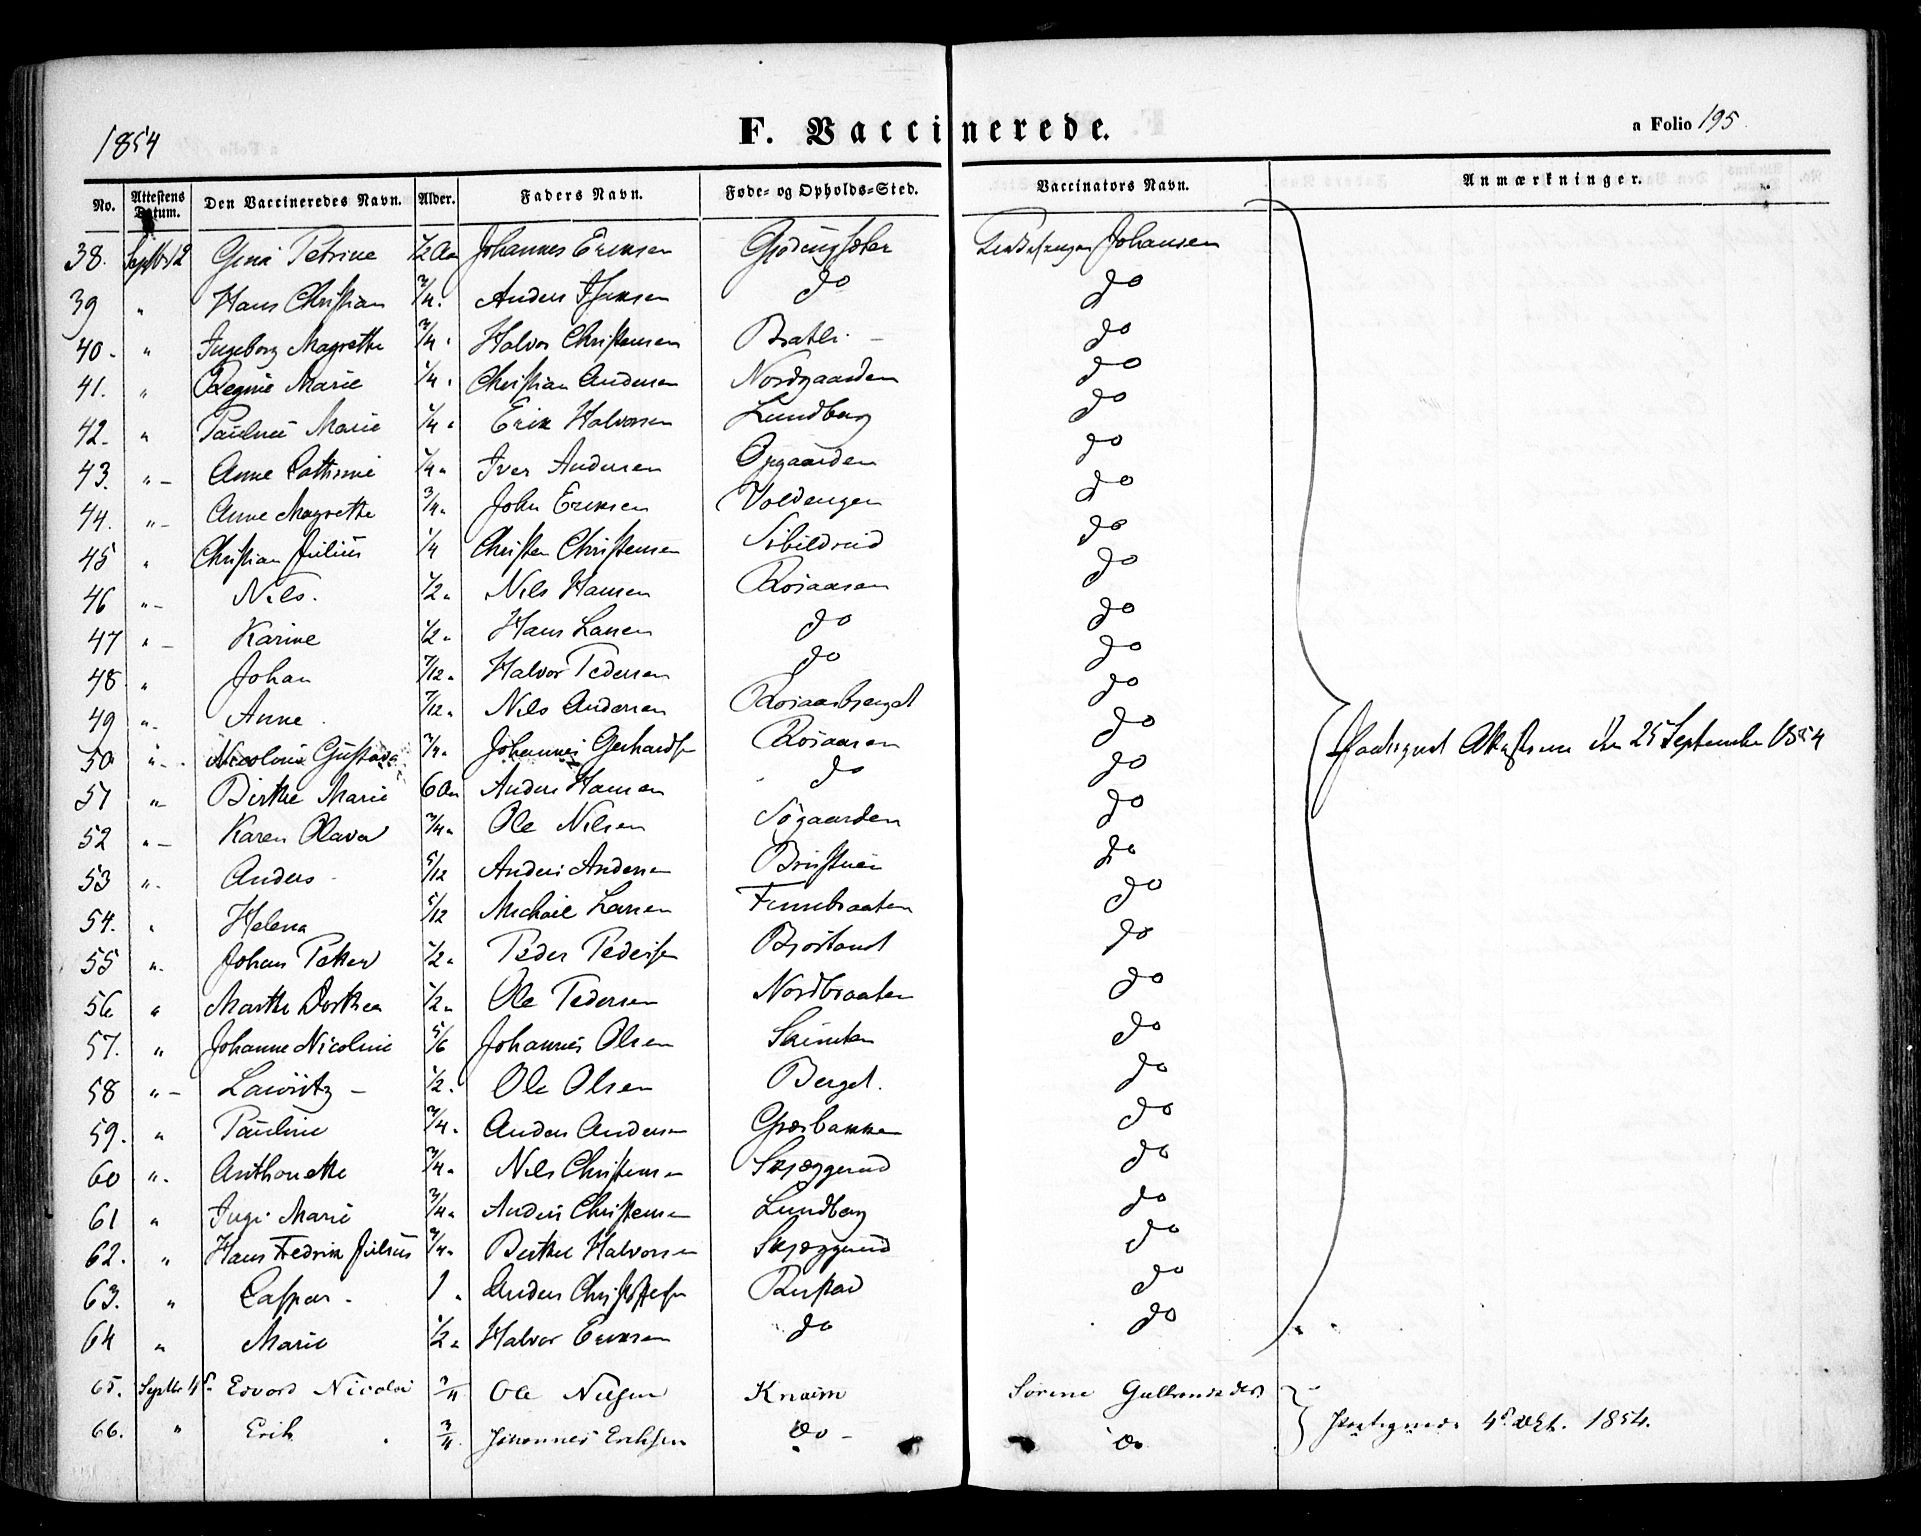 1854
F. Vaccinerede.
a Folio 195.
No. Attestens Datum. Den Vaccineredes Navn. Alder. Faders Navn. Føde- og Opholds-Sted. Vaccinators Navn. Anmærkninger.
38. Septbr 12 Gina Petrine 1/2 Aar Johannes Eriksen Johansen
39 " Hans Christian 3/4 " Anders do do
40 - " Ingeborg Magrethe 3/4 " Halvor Christensen Bratli - do
41. " Regine Marie 1/4 " Christian Andersen Nordgaarden do
42. " Pauline Marie 1/4 " Erik Halvorsen Lundberg do
43. " - Anne Cathrine 1/4 " Iver Andersen Opgaarden do
44. " - Anne Magrethe 3/4 " John Eriksen Voldengen do
45 " Christian Julius 1/4 Christen Christensen Sibildrud do
46 " - Nils. 1/2 " Nils Hansen Rosaasen do
47 " - Karine 1/2 " Hans Larsen do do
48 " Johan 7/12 " Halvor Pedersen do do
49 " - Anne 7/12 " Nils Andersen do
50 " - Nicoline Gustava 3/4 " Johannes Gerhardsen Rosaasen do
51 " Birthe Marie 6 Aar Anders Hansen do do
52 " - Karen Olava 3/4 " Ole Nilsen Søgaarden do
53 " - Anders - 5/12 Anders Andersen do
54. " Helena 5/12 Michael Larsen Finnbraaten do
55 " - Johan Petter 1/2 " Peder Pedersen do
56 " Marthe Dorthea 1/2 " Ole Pedersen Nordbraaten do
57. " Johanne Nicoline 5/6 Johannes Olsen do
58 " - Lauritz - 1/2 " Ole Olsen Berget. do
59. " Pauline 3/4 " Anders Andersen Græsbakken do
60 " - Anthonette 3/4 " Nils Christensen Skjæggerud do
61 " Inge Marie 3/4 " Anders Christensen Lundberg do
62. " Hans Fredrik Julius 3/4 " Berthel Halvorsen Skjæggerud do
63. " Caspar - 1 " Anders Christoffersen Rustad do
64 " Marie 1/2 " Halvor Eriksen do do
Paategnet Attesterne den 25 September 1854
65. Septbr Edvard Nicolai Ole Nilsen Knaim Sørine
66. " Erik 3/4 Johannes Eriksen Do - Do
Paategnede 4de Okt. 1854.